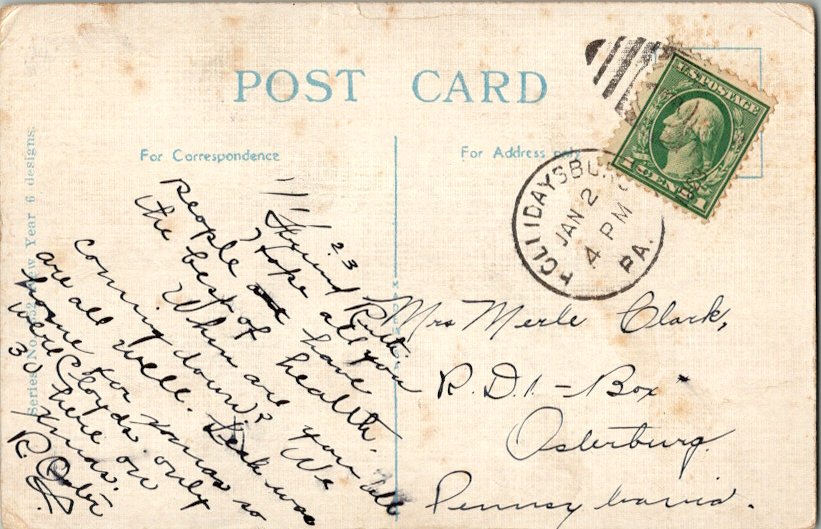 POST CARD
For Correspondence
For Address only
U.S. POSTAGE
1 CENT 1
HOLLIDAYSBURG
JAN 2
4 PM
PA.
Series No. New Year 6 designs.
1/1/23
Friend Ruth.
Hope all you
people have
the best of health.
When are you all
coming down? We
are all well. was
home for xmas so
were Cloyds only
30 here on
xmas.
R.
Mrs Merle Clark,
R.D.1 - Box
Osterburg
Pennsylvania.